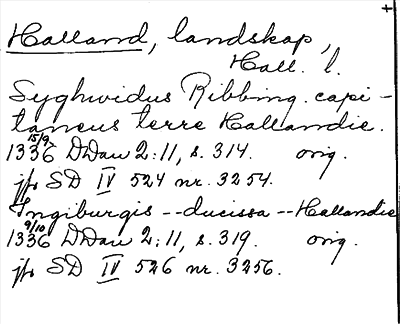 +
Halland, landskap,
Hall. l.
Syghwidus Ribbing. capi-
taneus terre Hallandie.
15/9
1336 DDan 2:11, s. 314. orig.
jfr SD IV 524 nr. 3254.
Ingiburgis -- ducissa -- Hallandie
9/10
1336 DDan 2:11, s. 319. orig.
jfr SD IV 526 nr. 3256.